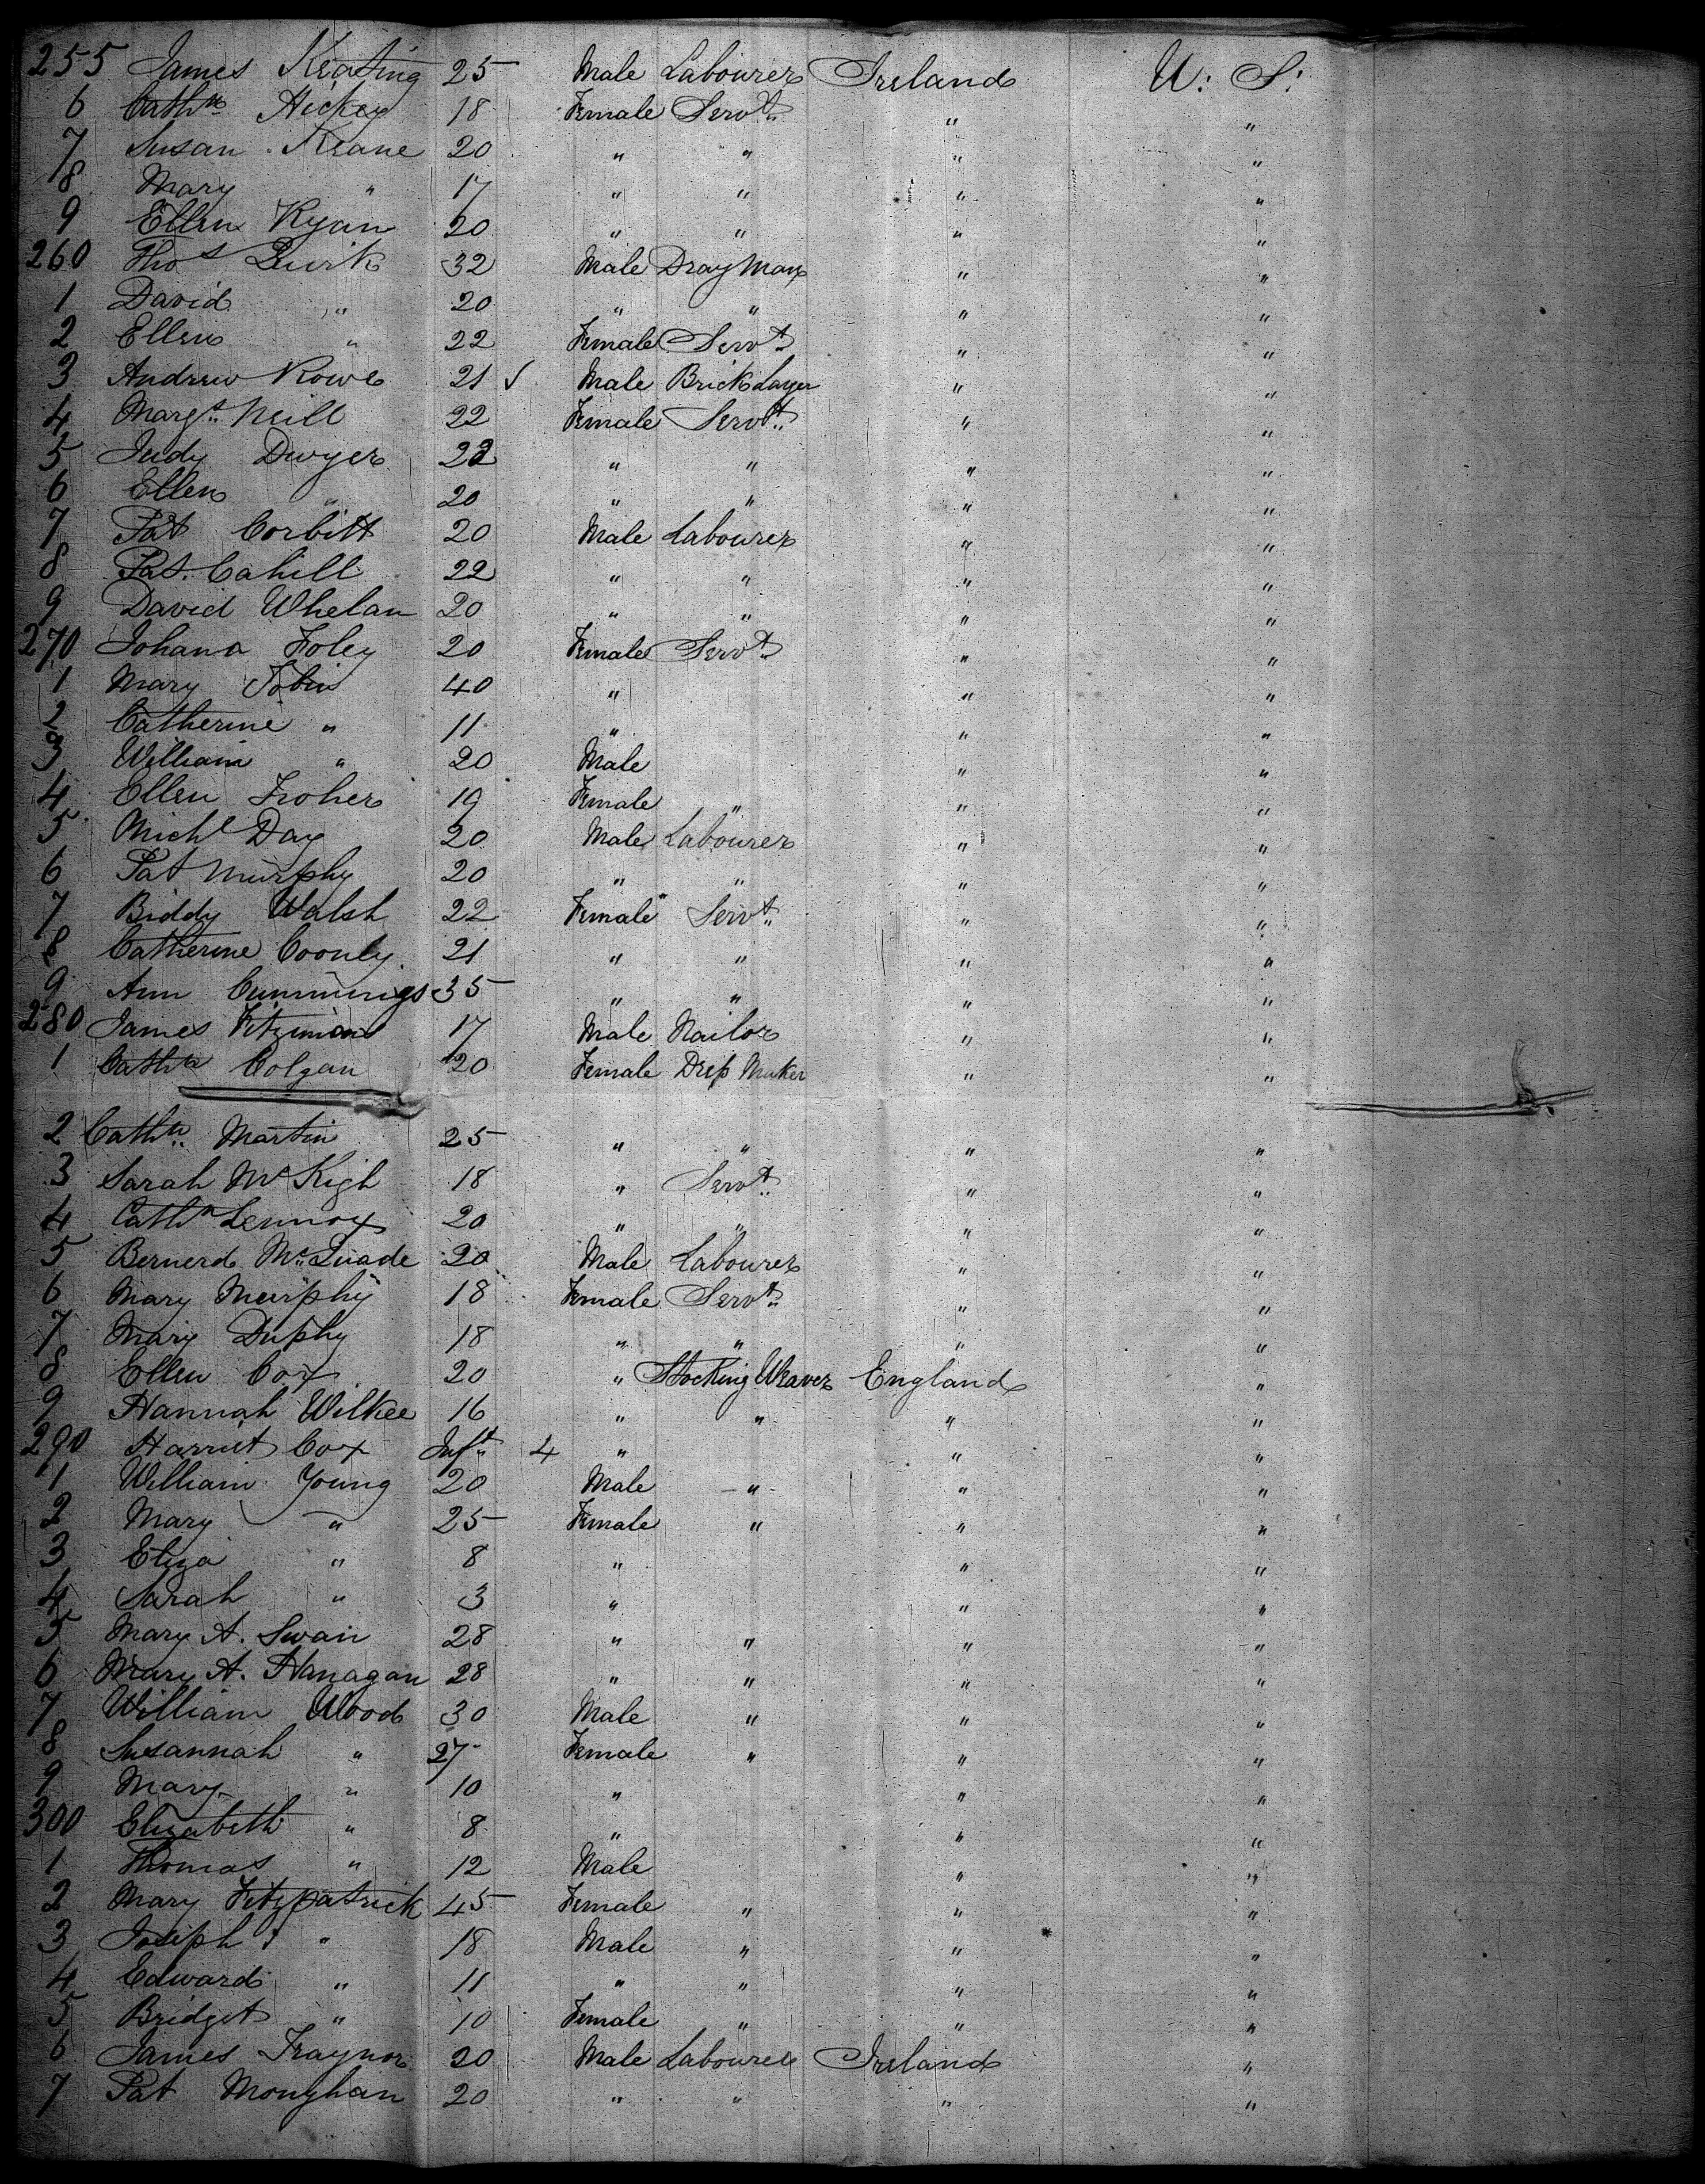 255 James Keating 25 Male Labourer Ireland U. S.
6 Cathn Hickey 18 Female Servt " "
7 Susan Keane 20 " " " "
8 Mary " 17 " " " "
9 Ellen Ryan 20 " " " "
260 Thos Quirk 32 Male Dray Man " "
1 David " 20 " " " "
2 Ellen " 22 Female Servt " "
3 Andrew Rowe 21 √ Male Brick Layer " "
4 Margt Neill 22 Female Servt " "
5 Judy Dwyer 22 " " " "
6 Ellen " 20 " " " "
7 Pat Corbitt 20 Male Labourer " "
8 Pat. Cahill 22 " " " "
9 David Whelan 20 " " " "
270 Johana Foley 20 Female Servt " "
1 Mary Tobin 40 " " "
2 Catherine " 11 " " "
3 William " 20 Male " "
4 Ellen Froher 19 Female " " "
5 Michl Day 20 Male Labourer " "
6 Pat Murphy 20 " " " "
7 Biddy Walsh 22 Female Servt " "
8 Catherine Coonly 21 " " " "
9 Ann Cummings 35 " " " "
280 James Fitzimons 17 Male Nailor " "
1 Cathn Colgan 20 Female Dress Maker " "
2 Cathn Martin 25 " " " "
3 Sarah McKigh 18 " Servt " "
4 Cathn Lennox 20 " " " "
5 Bernerd McQuade 20 Male Labourer " "
6 Mary Murphy 18 Female Servt " "
7 Mary Duphy 18 " " " "
8 Ellen Cox 20 " Stocking Weaver England "
9 Hannah Wilkee 16 " " " "
290 Harriet Cox Inft 4 " " "
1 William Young 20 Male " " "
2 Mary " 25 Female " " "
3 Eliza " 8 " " "
4 Sarah " 3 " " "
5 Mary A. Swain 28 " " " "
6 Mary A. Hanagan 28 " " " "
7 William Wood 30 Male " " "
8 Susannah " 27 Female " " "
9 Mary " 10 " " "
300 Elizabeth " 8 " " "
1 Thomas " 12 Male " "
2 Mary Fitzpatrick 45 Female " " "
3 Joseph " 18 Male " " "
4 Edward " 11 " " " "
5 Bridget " 10 Female " " "
6 James Traynor 20 Male Labourer Ireland "
7 Pat Monyhan 20 " " " "